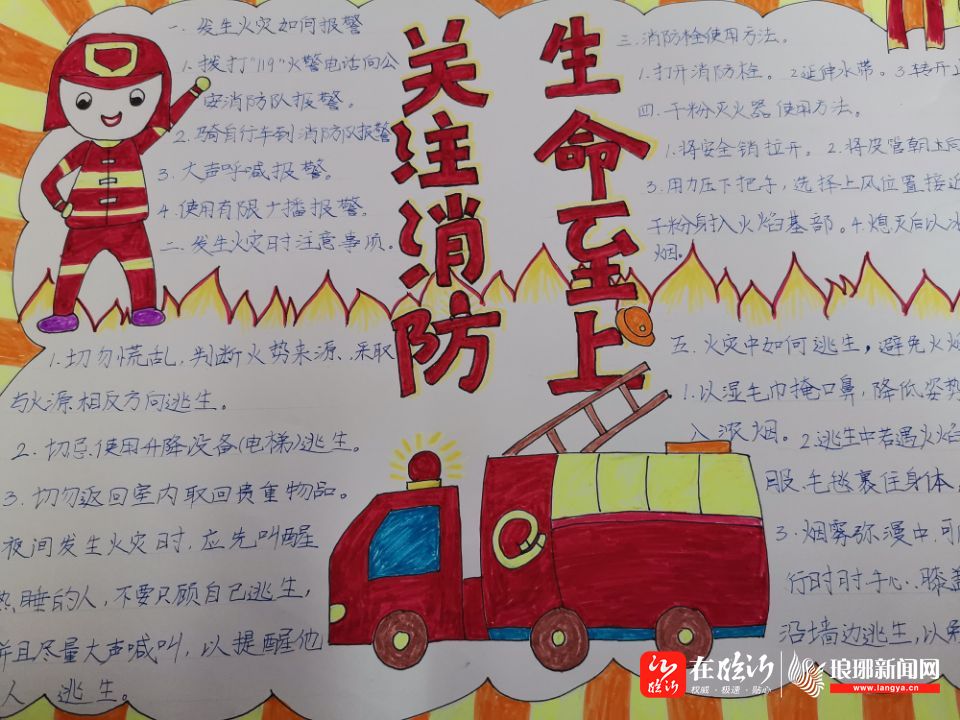 关注消防
生命至上
一、发生火灾如何报警
1.拨打"119"火警电话向公
安消防队报警。
2.骑自行车到消防队报警
3.大声呼喊报警。
4.使用有限广播报警。
二、发生火灾时注意事项。
1.切勿慌乱,判断火势来源、采取
与火源相反方向逃生。
2.切忌使用升降设备(电梯)逃生。
3.切勿返回室内取回贵重物品。
夜间发生火灾时,应先叫醒
熟睡的人,不要只顾自己逃生,
并且尽量大声喊叫,以提醒他
人逃生。
三.消防栓使用方法。
1.打开消防栓。2.延伸水带。3.转开
四.干粉灭火器使用方法。
1.将安全销拉开。2.将皮管朝
3.用力压下把手,选择上风位置接近
干粉射入火焰基部。4.熄灭后以
烟。
五.火灾中如何逃生,避免火烟
1.以湿毛巾掩口鼻,降低姿势
入浓烟。2.逃生中若遇火焰
服、毛毯裹住身体
3.烟雾弥漫中,可
行时时手心、膝盖
沿墙边逃生,以免
在临沂
权威·极速·贴心
琅琊新闻网
www.langya.cn